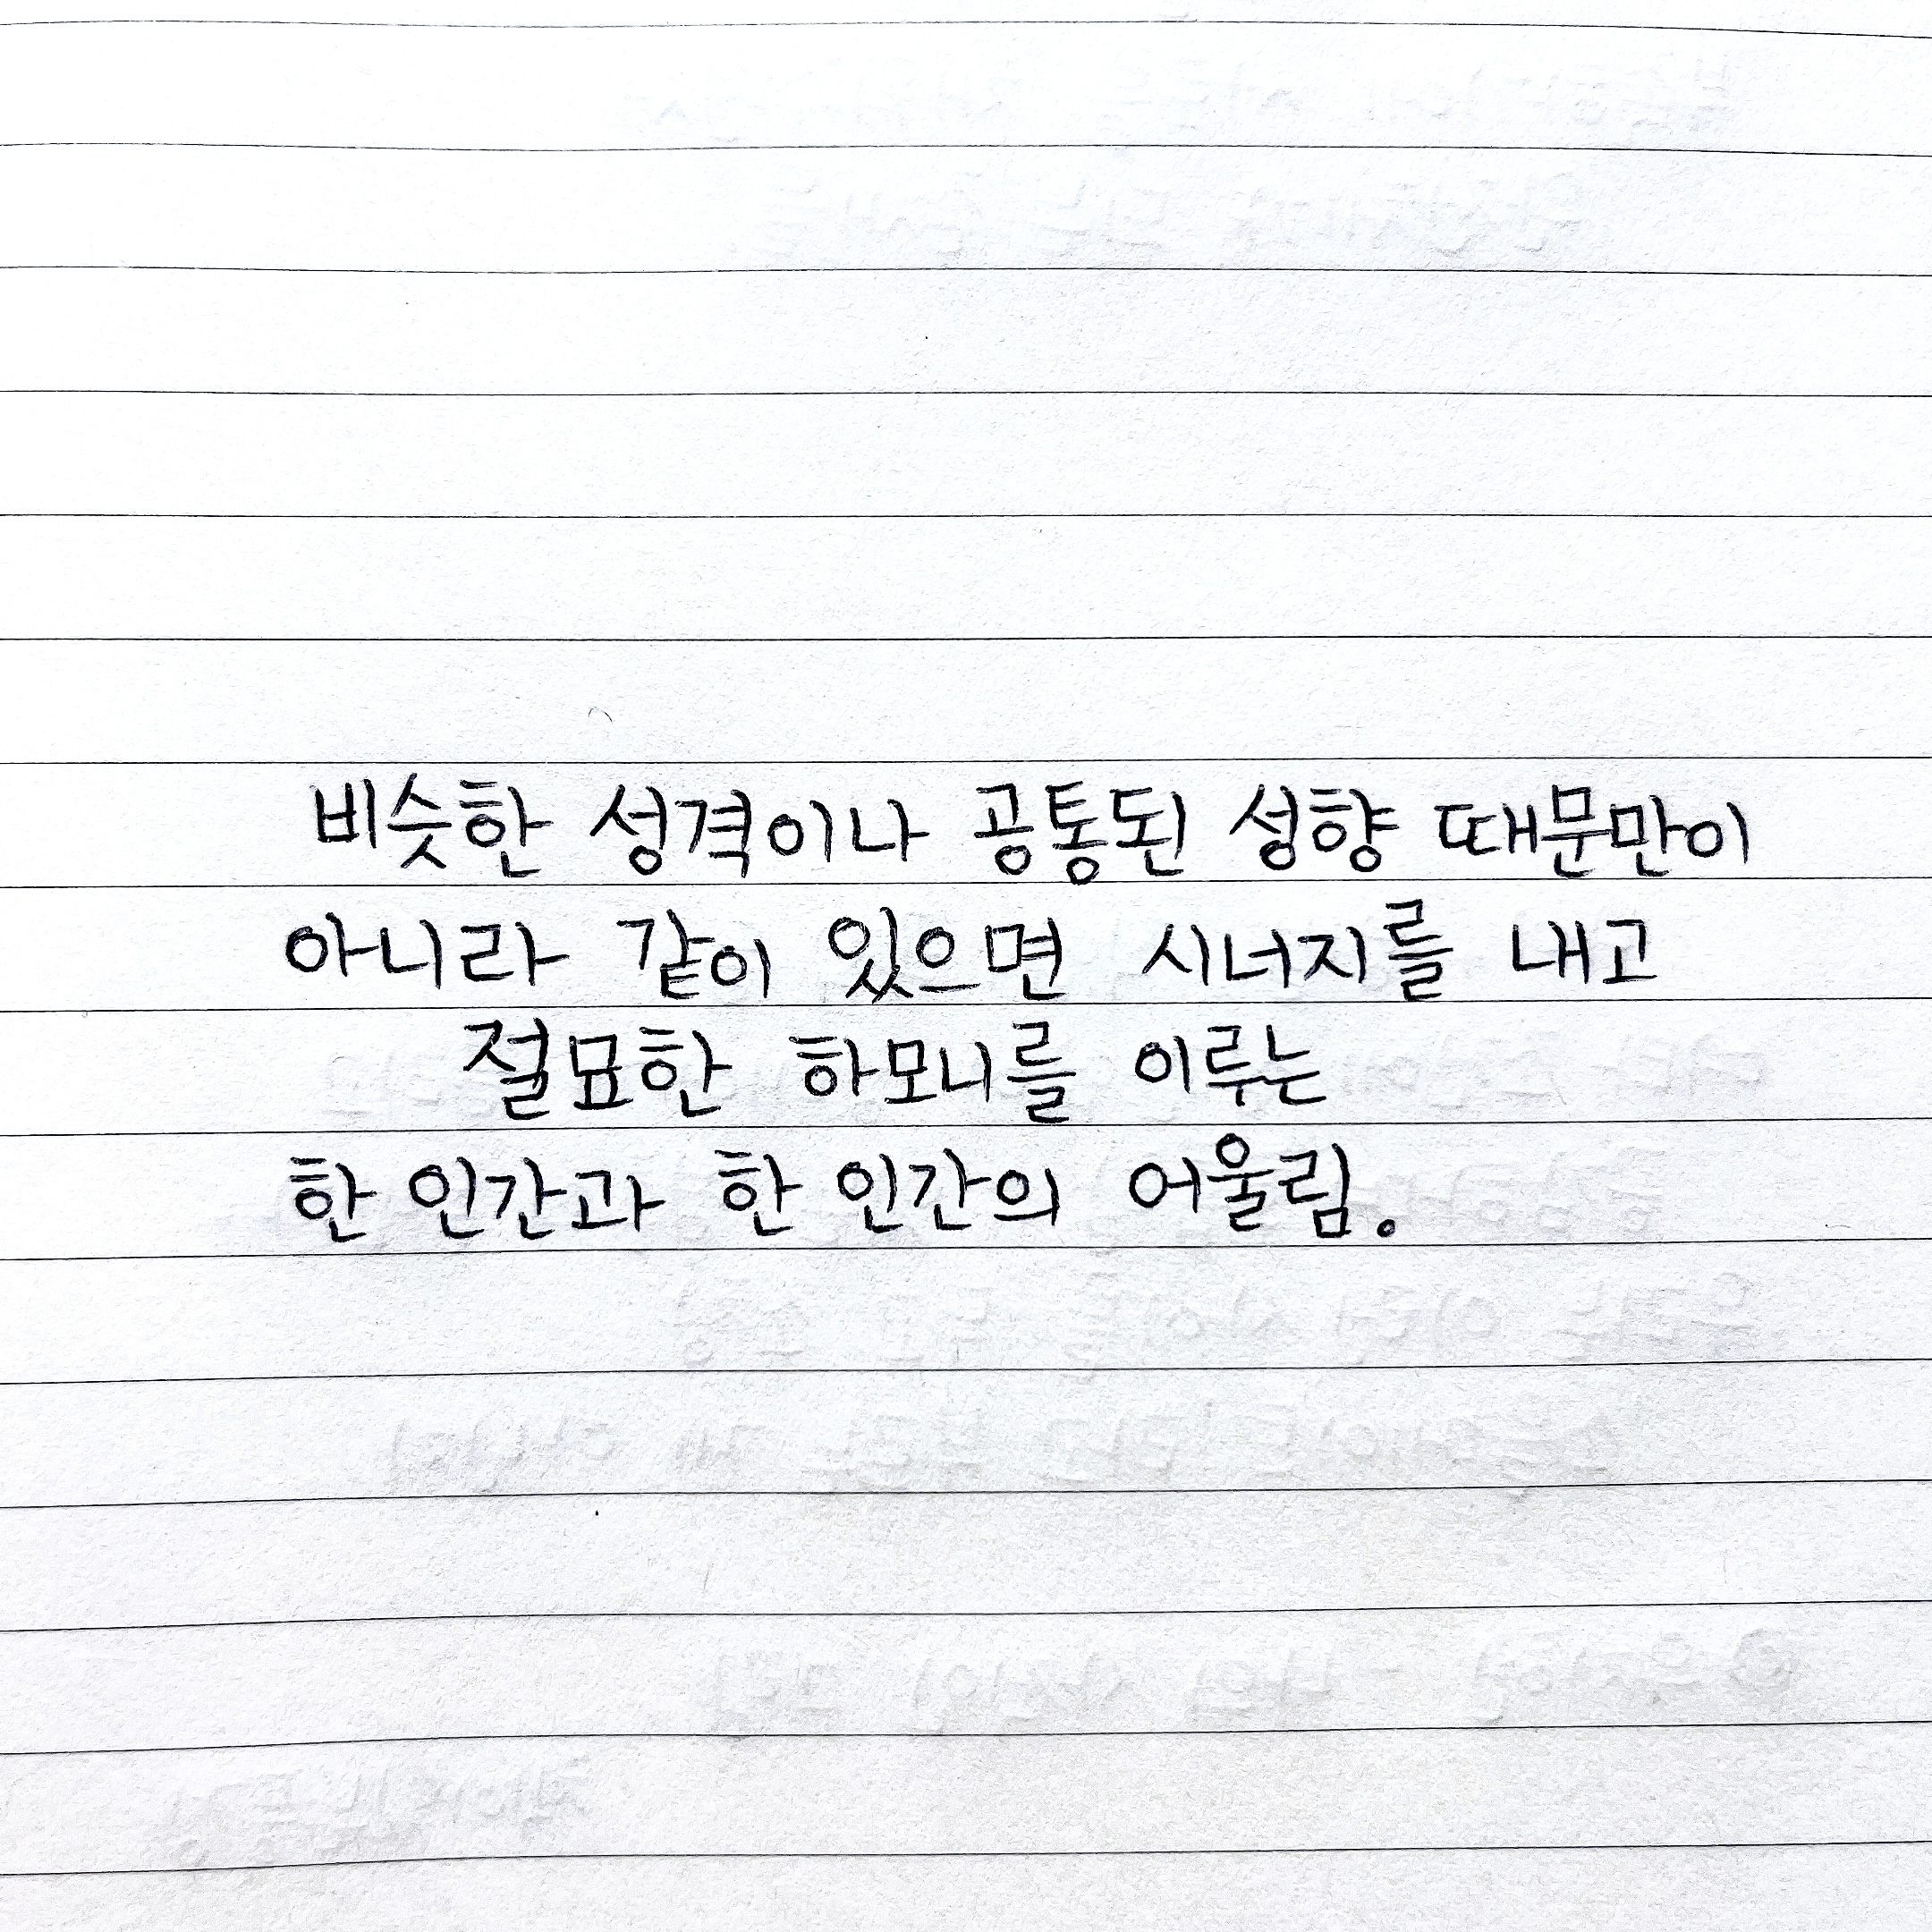 비슷한 성격이나 공통된 성향 때문만이
아니라 같이 있으면 시너지를 내고
절묘한 하모니를 이루는
한 인간과 한 인간의 어울림.